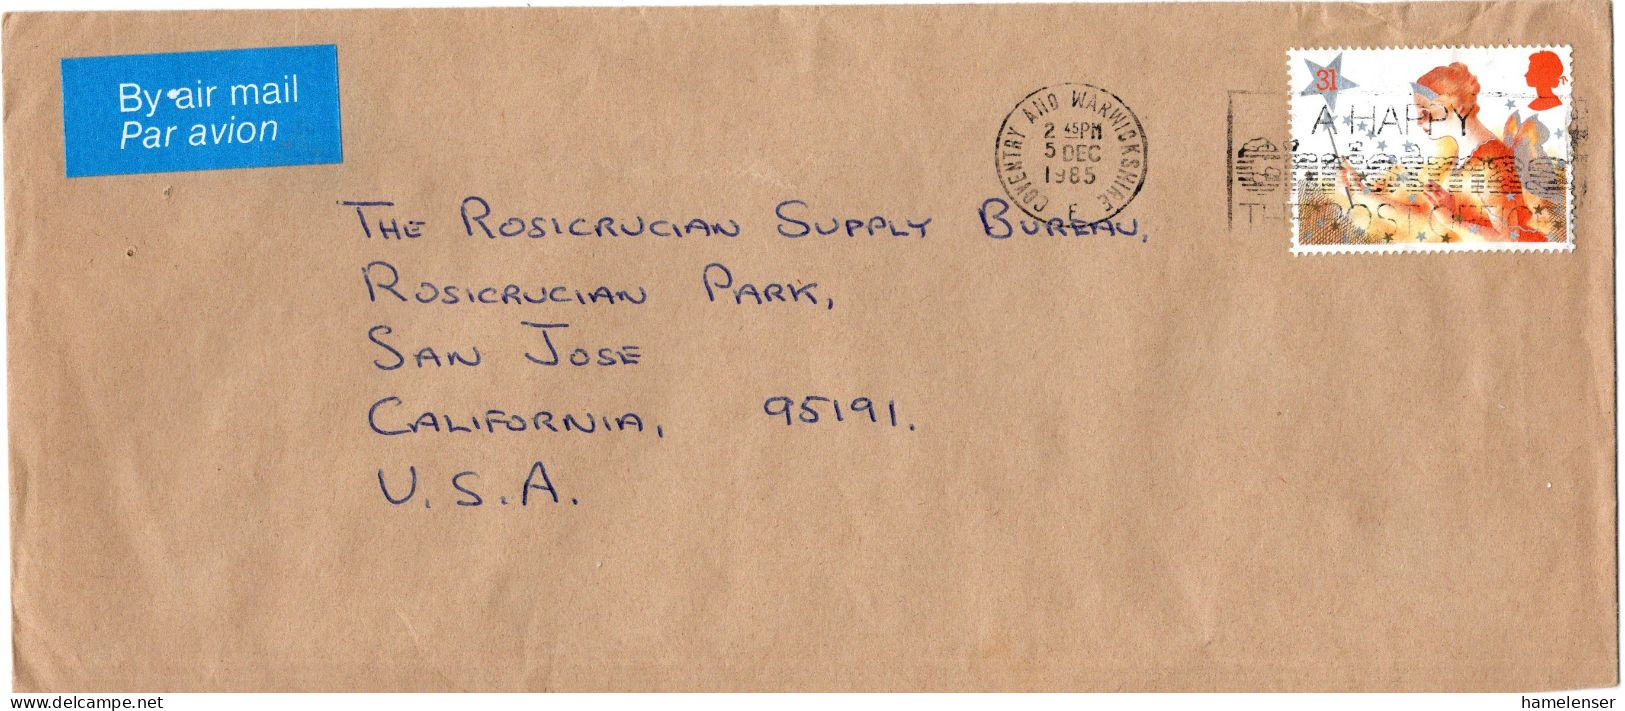 By air mail
Par avion
COVENTRY AND WARWICKSHIRE
2 45PM
5 DEC
1985
E
31
A HAPPY
THE POST OFFICE
THE ROSICRUCIAN SUPPLY BUREAU,
ROSICRUCIAN PARK,
SAN JOSE
CALIFORNIA, 95191.
U.S.A.
delcampe.net
hamelenser